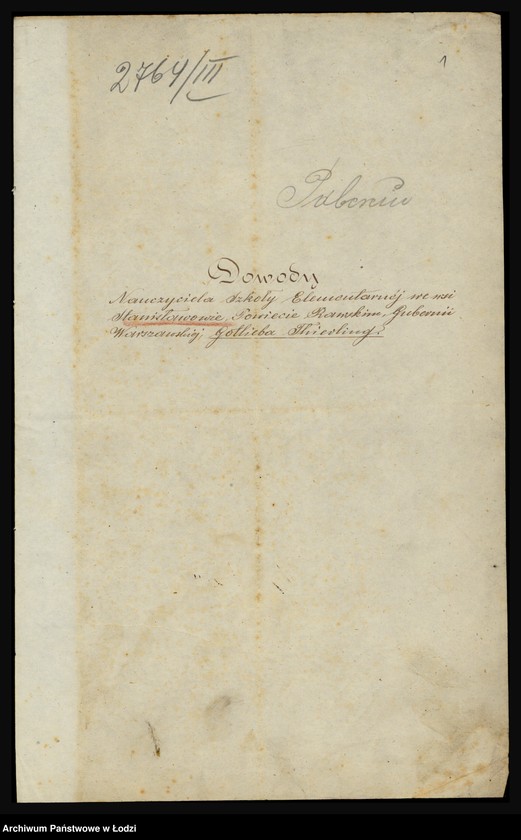 2764/III
1
Dowody
Nauczyciela Szkoły Elementarnéj we wsi
Stanisławowie, Powiecie Rawskim, Gubernii
Warszawskiéj, Gotlieba Thierling.
Archiwum Państwowe w Łodzi